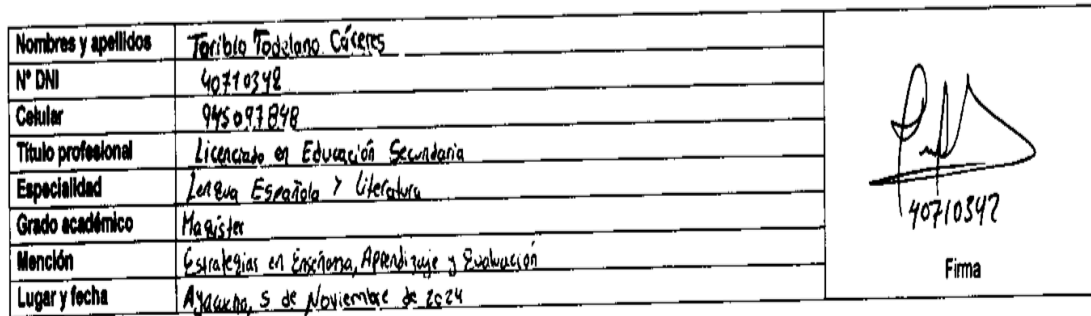 Nombres y apellidos Toribio Todelano Cáceres
N° DNI 40710342
Celular 945097848
Título profesional Licenciado en Educación Secundaria
Especialidad Lengua Española y Literatura
Grado académico Magíster
Mención Estrategias en Enseñanza, Aprendizaje y Evaluación
Lugar y fecha Ayacucho, 5 de Noviembre de 2024
40710342
Firma